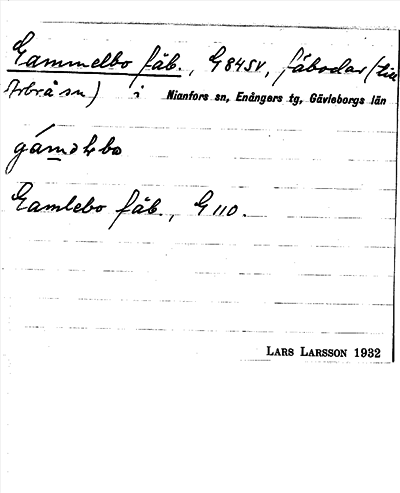 Gammelbo fäb., G 84SV, fäbodar (till
Arbrå sn) i Nianfors sn, Enångers tg, Gävleborgs län
Gamlebo fäb., G 110.
LARS LARSSON 1932